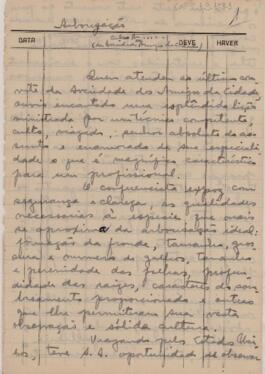 Arborização
1
DATA DEVE HAVER
Quem attendeu ao último con-
vite da Sociedade dos Amigos da Cidade
ouviu encantado uma esplêndida lição
ministrada por um técnico competente,
culto, viajado, senhor absoluto do as-
sunto e enamorado de sua especiali-
dade o que é magnífica característica
para um profissional.
O conferencista expoz com
segurança e clareza, as qualidades
necessárias às espécies, que mais
se aproxima da arborisação ideal:
formação da fronde, tamanho, gros
sura e numero de galhos, tamanho
e perenidade das folhas, profun
didade das raízes, caracter do som
breamento proporcionado e outras
que lhe permittiram sua vasta
observação e sólida cultura.
Viajando pelos Estados Uni
dos, teve S. S. opportunidade de observar